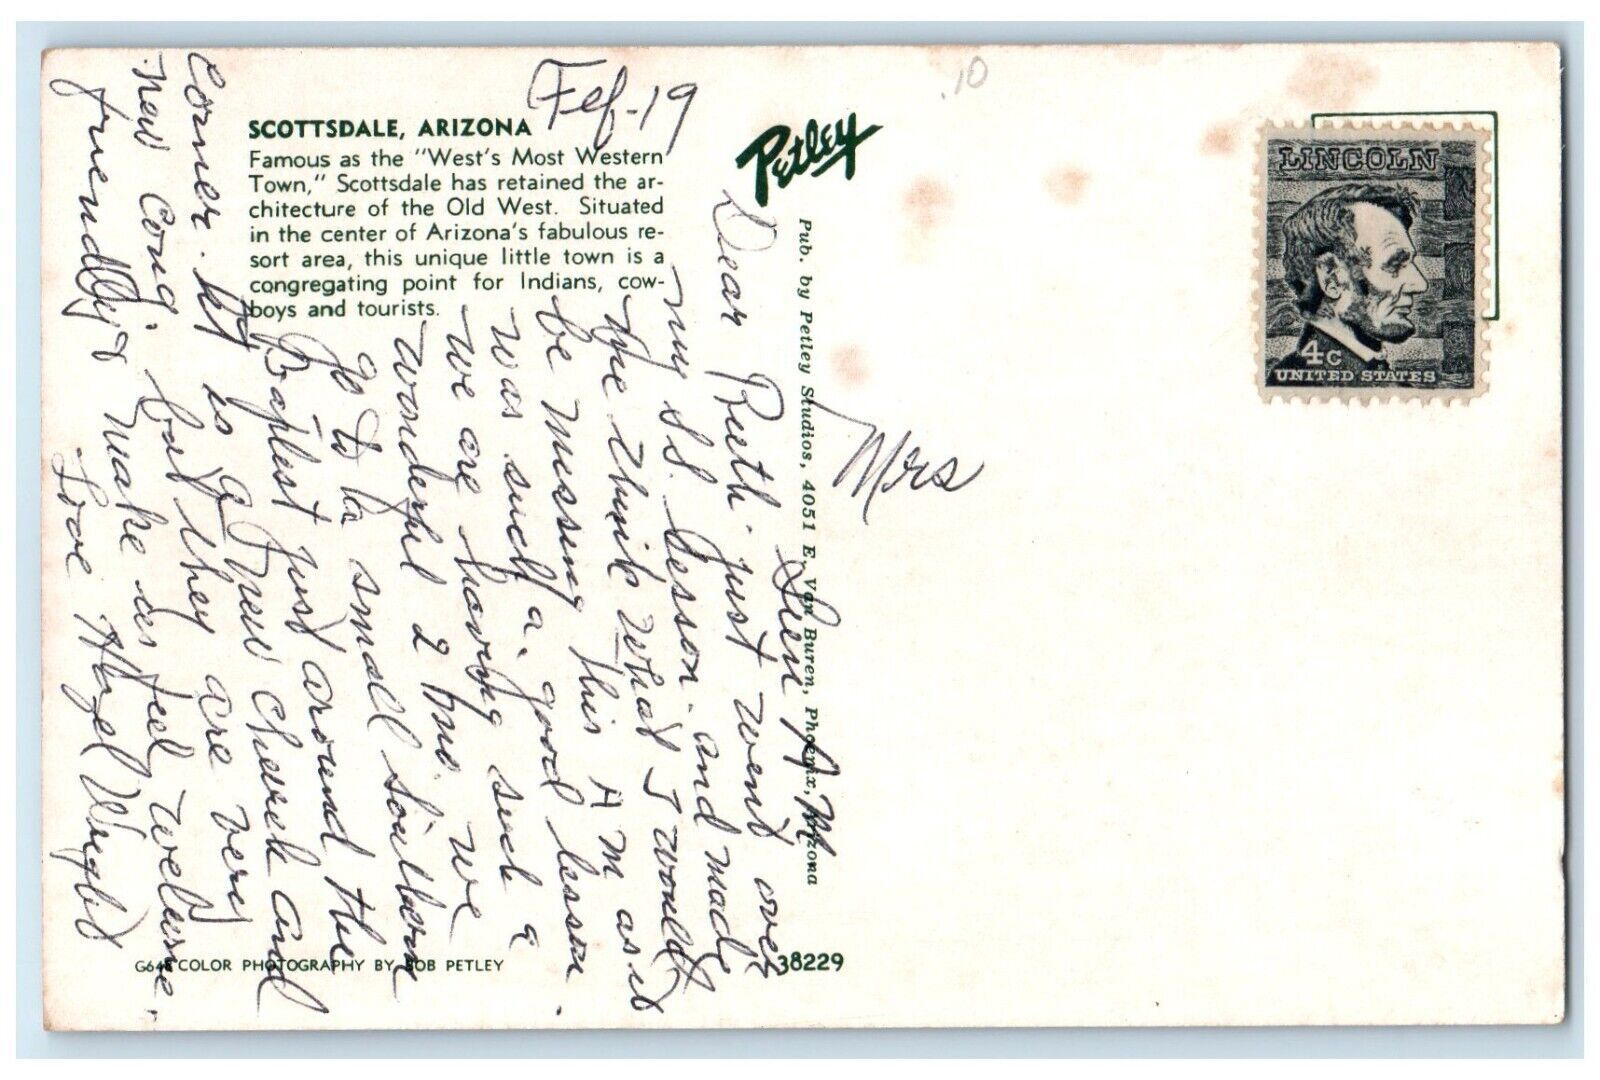 .10
Feb-19
SCOTTSDALE, ARIZONA
Famous as the "West's Most Western
Town," Scottsdale has retained the ar-
chitecture of the Old West. Situated
in the center of Arizona's fabulous re-
sort area, this unique little town is a
congregating point for Indians, cow-
boys and tourists.
Petley
LINCOLN
4c
UNITED STATES
Pub. by Petley Studios, 4051 E. Van Buren, Phoenix, Arizona
Mrs
Sun A.M.
Dear Ruth just went over
my S.S. Lesson and made
me think what I would
be missing this A M as it
was such a good lesson.
we are having such a
wonderful 2 mo. we
go to a small Southern
Baptist just around the
Corner. it is a new church and
new cong. but they are very
friendly & make us feel welcome.
Love Hazel Wright
COLOR PHOTOGRAPHY BY BOB PETLEY
38229